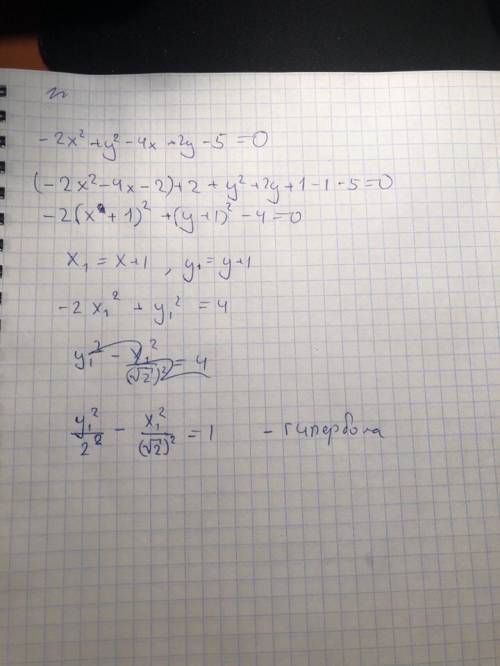 -2x² + y² - 4x + 2y - 5 = 0
(-2x² - 4x - 2) + 2 + y² + 2y + 1 - 1 - 5 = 0
-2(x + 1)² + (y + 1)² - 4 = 0
x₁ = x + 1 , y₁ = y + 1
-2x₁² + y₁² = 4
y₁² - x₁²/(√2)² = 4
y₁²/2² - x₁²/(√2)² = 1 - гипербола